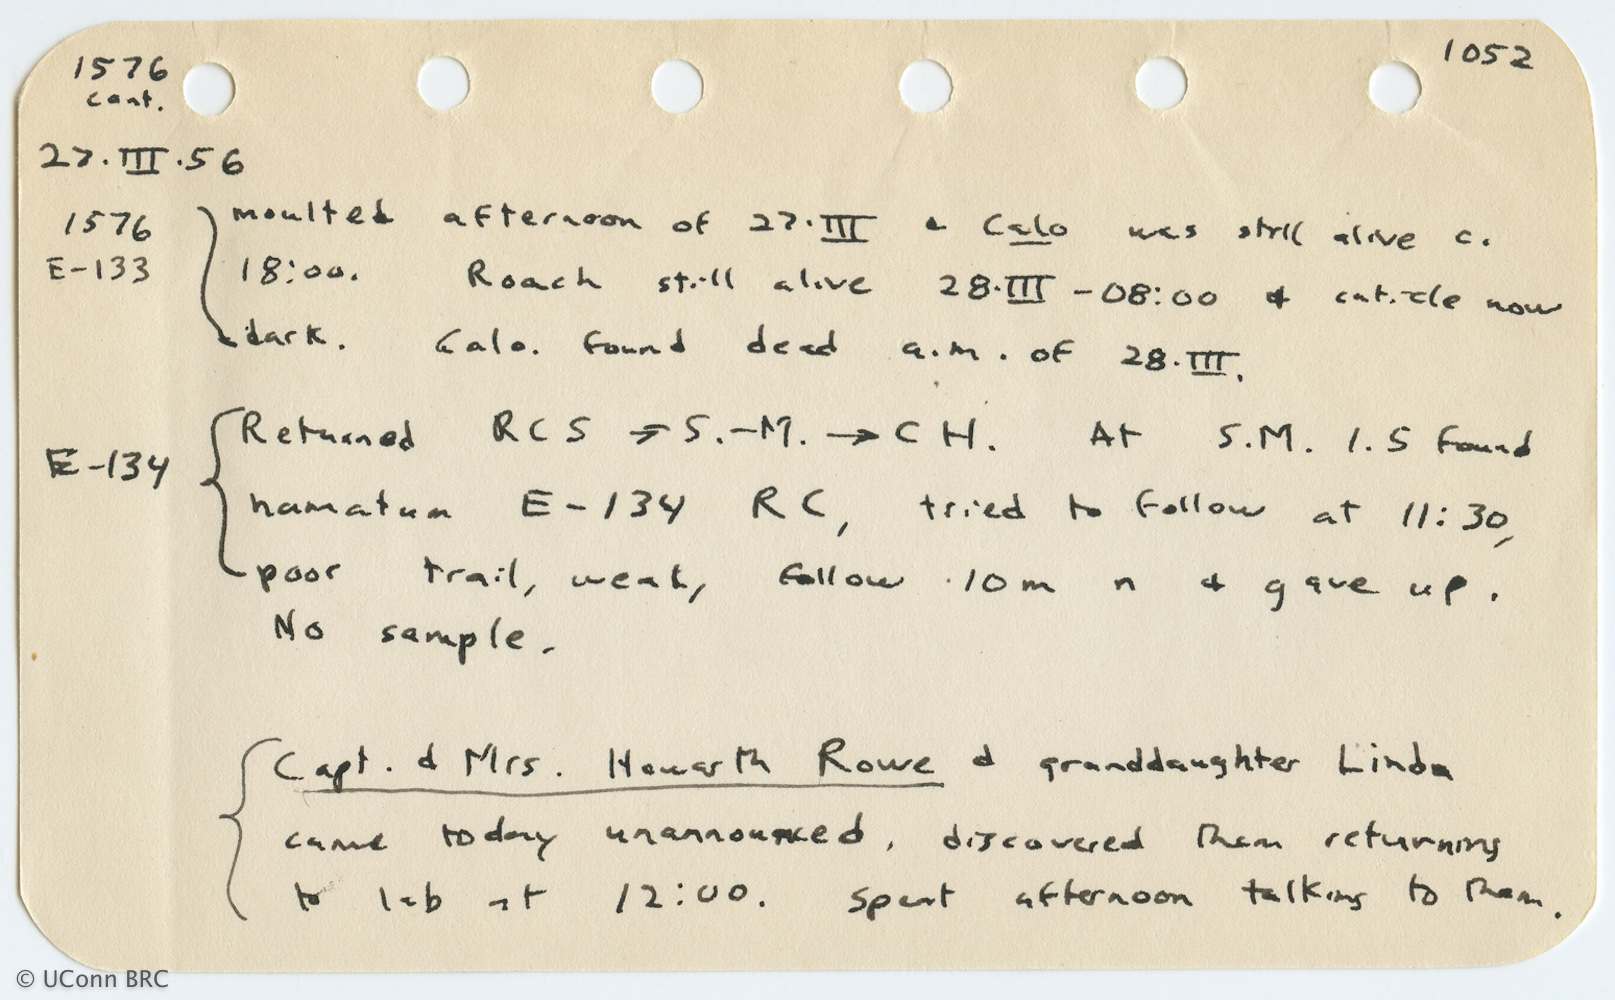 1576
cont.
1052
27.III.56
1576
E-133
moulted afternoon of 27.III & Calo was still alive c.
18:00. Roach still alive 28.III - 08:00 & cuticle now
dark. Calo. found dead a.m. of 28.III.
E-134
Returned RCS → S.-M. → CH. At S.M. 1.5 found
hamatum E-134 RC, tried to follow at 11:30,
poor trail, weak, follow 10m n & gave up.
No sample.
Capt. & Mrs. Howarth Rowe & granddaughter Linda
came today unannounced, discovered them returning
to lab at 12:00. Spent afternoon talking to them.
© UConn BRC